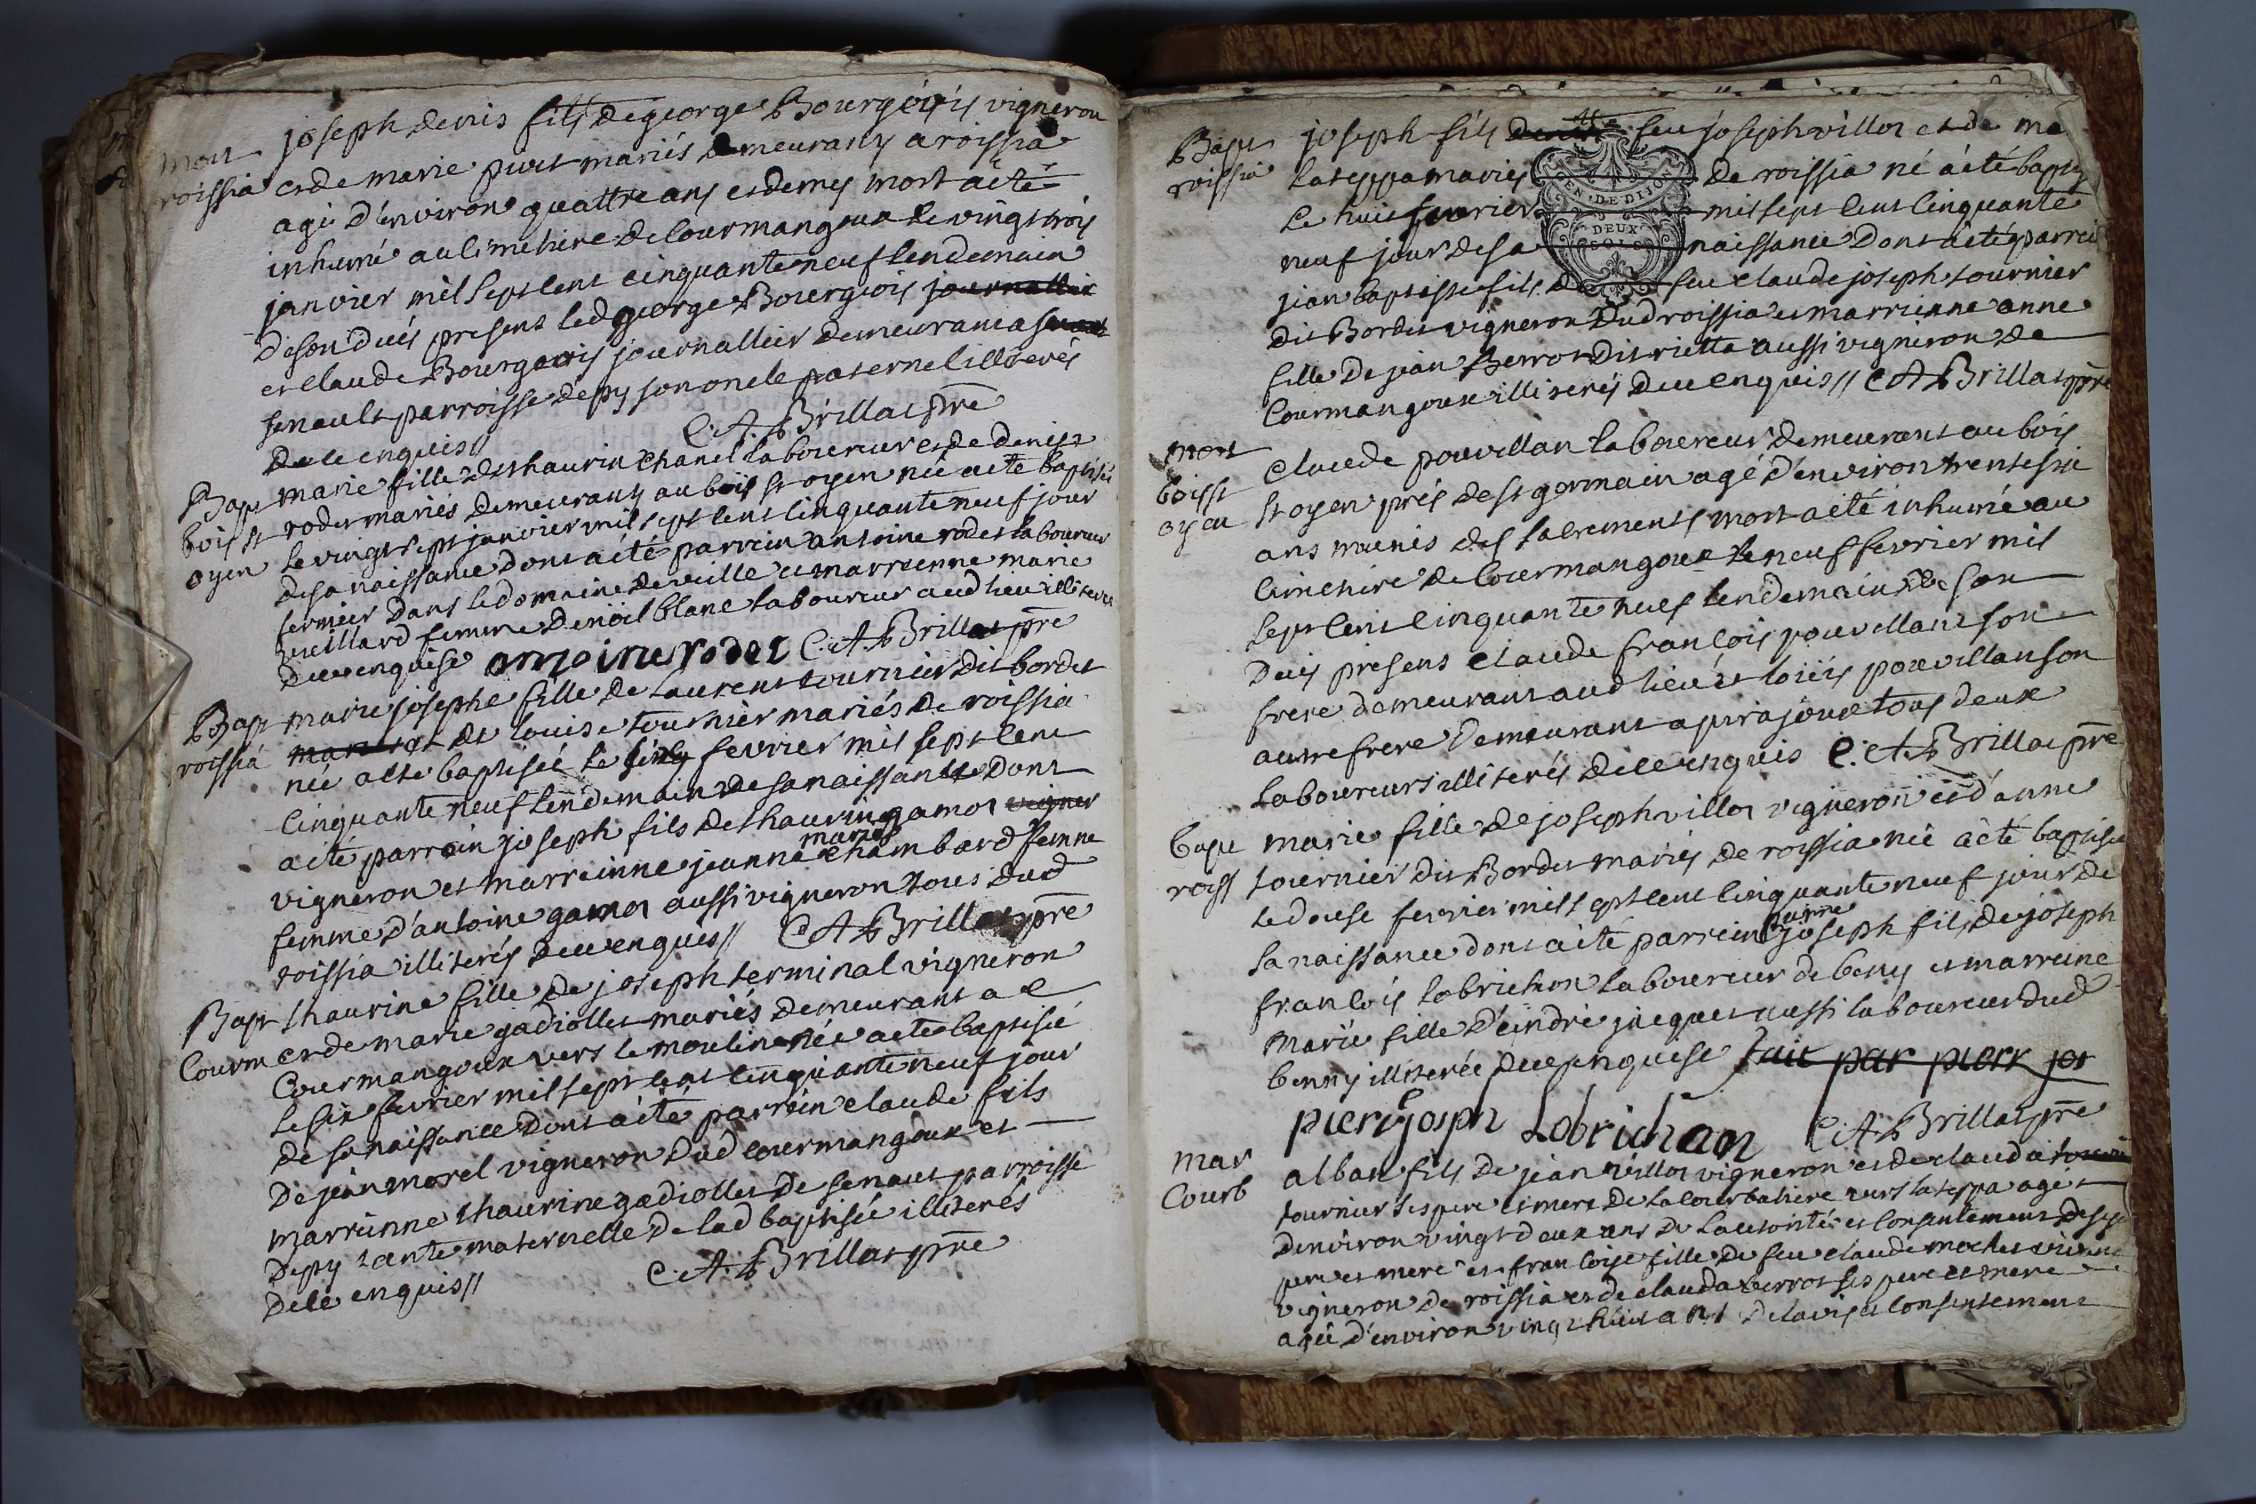 joseph denis fils de george Bourgeois vigneron
mort
roissia et de marie pivet mariés demeurants a roissia
agé d'environ quattre ans et demy mort a eté
inhumé au cimetiere de Courmangoux le vingt trois
janvier mil sept cent cinquante neuf lendemain
de son decés present led george Bourgeois journallier
et Claude Bourgeois journallier demeurant a
senault parroisse de py son oncle paternel illiterés
de ce enquis C. A. Brillat prre
Bapt marie fille de thaurin Chanel laboureur et de denise
bois st rodet mariés demeurants au bois st oyen née a eté baptisée
oyen le vingt sept janvier mil sept cent cinquante neuf jour
de sa naissance dont a été parrein antoine rodet laboureur
fermier dans le domaine de veille et marrenne marie
vueillard femme de noël blanc laboureur aud lieu illiteré
de ce enquise antoine rodet C. A. Brillat prre
Bapt marie josephe fille de laurent tournier dit bordet
roissia et de louise tournier mariés de roissia
née a eté baptisée le cinq fevrier mil sept cent
cinquante neuf lendemain de sa naissance dont
a eté parrein joseph fils de thaurin gamot vigner
marie
vigneron et marreinne jeanne chambard femme
femme d'antoine gamot aussi vigneron tous dud
roissia illiterés de ce enquis // C A Brillat prre
Bapt thaurine fille de joseph terminal vigneron
Courm et de marie gadiollet mariés demeurant a
Courmangoux vers le moulin née a eté baptisée
le six fevrier mil sept cent cinquante neuf jour
de sa naissance dont a été parrein claude fils
de jean morel vigneron dud courmangoux et
marreinne thaurine gadiollet de senaut parroisse
de py tante maternelle de lad baptisée illiterés
de ce enquis // C. A. Brillat prre
Bapt joseph fils feu joseph villot et de
roissia la teppa mariés de roissia né a eté baptisé
le huit fevrier mil sept cent cinquante
neuf jour de sa naissance dont a eté parrein
jean baptiste fils de feu claude joseph tournier
dit Bordet vigneron dud roissia et marrienne anne
fille de jean Berrot dit rietta aussi vigneron de
Courmangoux illiterés de ce enquis // C A Brillat prre
GEN. DE DIJON
DEUX
SOLS
mort claude pouvillan laboureur demeurant au bois
bois st
oyen st oyen prés de st germain agé d'environ trente six
ans munis des sacrements mort a eté inhumé au
cimetiere de Courmangoux le neuf fevrier mil
sept cent cinquante neuf lendemain de son
decés presens claude francois pouvillant son
frere demeurant aud lieu et pouvillan son
autre frere demeurant a tous deux
laboureurs illiterés de ce enquis C. A. Brillat prre
bapt marie fille de joseph villot vigneron et d'anne
roiss tournier dit Bordet mariés de roissia née a eté baptisée
le douse fevrier mil sept cent cinquante neuf jour de
pierre
sa naissance dont a été parrein joseph fils de joseph
francois lobrichon laboureur de beny et marreine
marie fille d'andré jacquet aussi laboureur dud
benny illiterée de ce enquise fait par pierr jos
pierr joseph Lobrichon C. A. Brillat prre
mar alban fils de jean villot vigneron et de clauda
Courb tournier ses pere et mere de la courbatiere vers la teppa agé
d'environ vingt deux ans de l'autorité et consentement de sesd
pere et mere et francoise fille de feu claude mochet vivant
vigneron de roissia et de clauda berrot ses pere et mere
agée d'environ vingt huit ans de l'avis et consentement